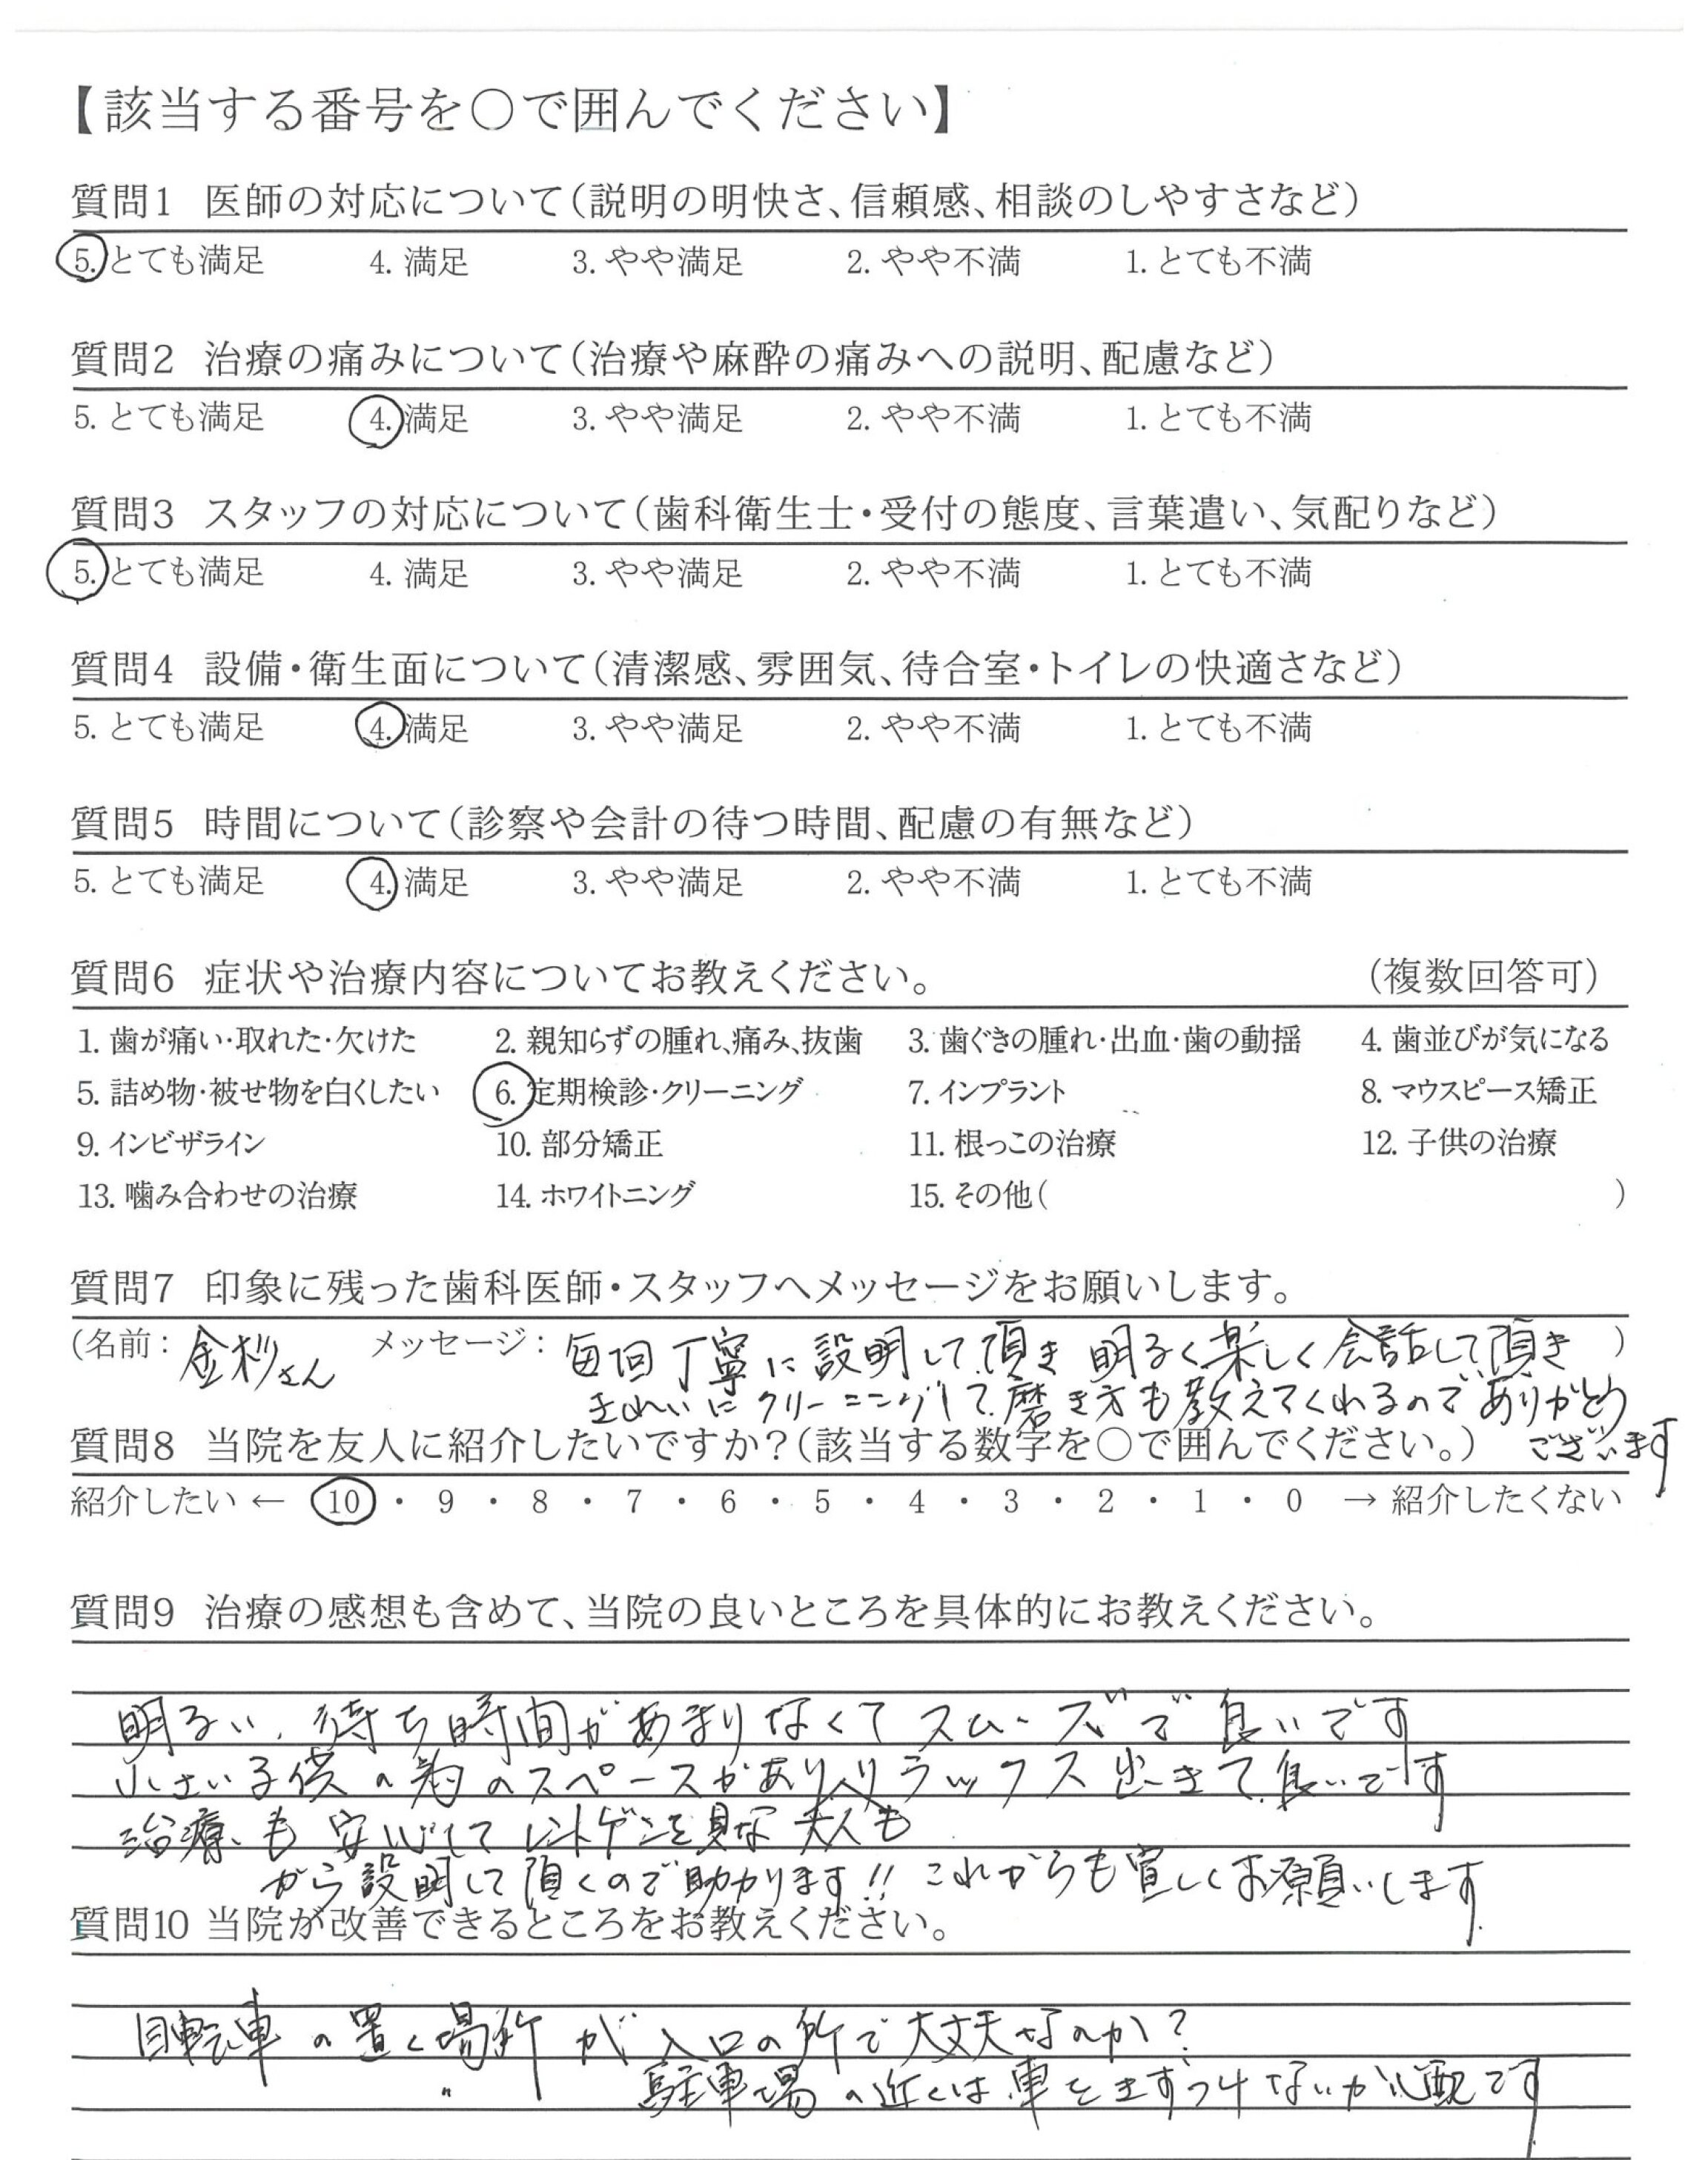 【該当する番号を○で囲んでください】
質問1 医師の対応について(説明の明快さ、信頼感、相談のしやすさなど)
5. とても満足 4. 満足 3. やや満足 2. やや不満 1. とても不満
質問2 治療の痛みについて(治療や麻酔の痛みへの説明、配慮など)
5. とても満足 4. 満足 3. やや満足 2. やや不満 1. とても不満
質問3 スタッフの対応について(歯科衛生士・受付の態度、言葉遣い、気配りなど)
5. とても満足 4. 満足 3. やや満足 2. やや不満 1. とても不満
質問4 設備・衛生面について(清潔感、雰囲気、待合室・トイレの快適さなど)
5. とても満足 4. 満足 3. やや満足 2. やや不満 1. とても不満
質問5 時間について(診察や会計の待つ時間、配慮の有無など)
5. とても満足 4. 満足 3. やや満足 2. やや不満 1. とても不満
質問6 症状や治療内容についてお教えください。 (複数回答可)
1. 歯が痛い・取れた・欠けた 2. 親知らずの腫れ、痛み、抜歯 3. 歯ぐきの腫れ・出血・歯の動揺 4. 歯並びが気になる
5. 詰め物・被せ物を白くしたい 6. 定期検診・クリーニング 7. インプラント 8. マウスピース矯正
9. インビザライン 10. 部分矯正 11. 根っこの治療 12. 子供の治療
13. 噛み合わせの治療 14. ホワイトニング 15. その他( )
質問7 印象に残った歯科医師・スタッフへメッセージをお願いします。
(名前: 金杉さん メッセージ: 毎回丁寧に説明して頂き 明るく楽しく会話して頂き )
きれいにクリーニングして磨き方も教えてくれるのでありがとう
ございます
質問8 当院を友人に紹介したいですか?(該当する数字を○で囲んでください。)
紹介したい ← 10 ・ 9 ・ 8 ・ 7 ・ 6 ・ 5 ・ 4 ・ 3 ・ 2 ・ 1 ・ 0 → 紹介したくない
質問9 治療の感想も含めて、当院の良いところを具体的にお教えください。
明るい、待ち時間があまりなくてスムーズで良いです
小さい子供の為のスペースがあり、リラックス出きて良いです
大人も
治療も安心してレントゲンを見な
がら説明して頂くので助かります!! これからも宜しくお願いします
質問10 当院が改善できるところをお教えください。
自転車の置く場所が入口の所で大丈夫なのか?
〃 駐車場の近くは車をきずつけないか心配です